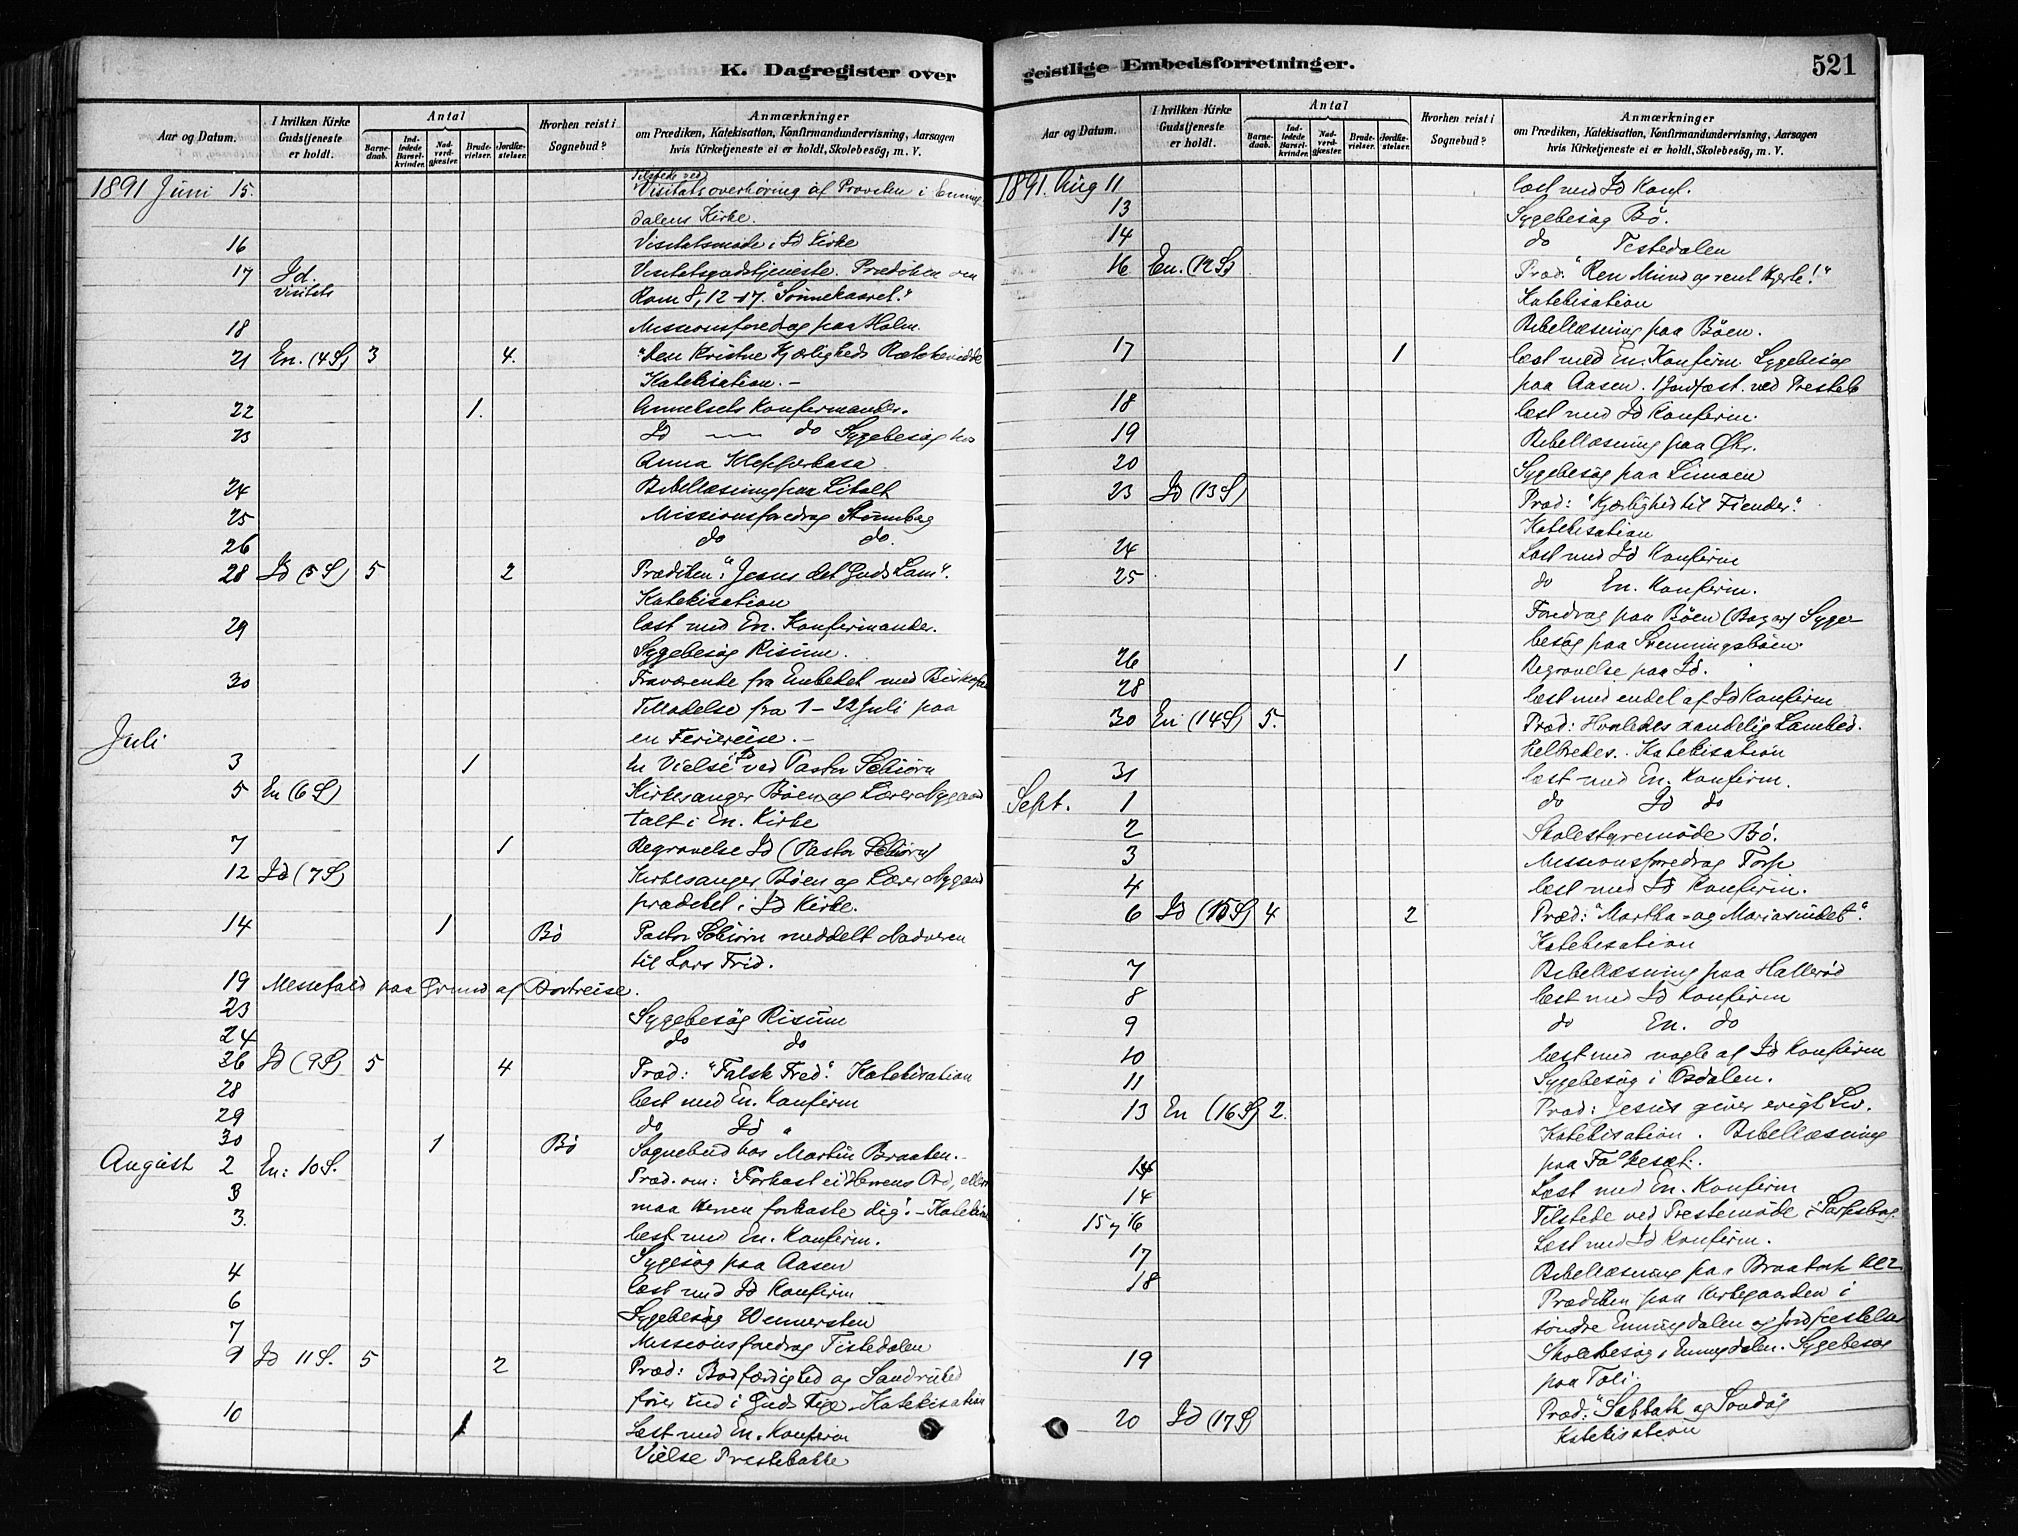 K. Dagregister over
Aar og Datum.
I hvilken Kirke Gudstjeneste er holdt.
Antal
Barnedaab.
Indledede Barselkvinder.
Nadverdgjæster.
Brudevielser.
Jordfæstelser.
Hvorhen reist i Sognebud?
Anmærkninger
om Prædiken, Katekisation, Konfirmandundervisning, Aarsagen
hvis Kirketjeneste ei er holdt, Skolebesøg, m. V.
1891 Juni 15. Tilstede ved
Visitatsoverhøring af Provsten i Enning-
dalens Kirke.
16 Visitatsmøde i Id Kirke
17 Id. Visitats Visitatsgudstjeneste. Prædiken om
Rom 8, 12-17. "Sønnekaaret."
18 Missionsforedrag paa Holm.
21 En. (4 S) 3 4. "Den Kristne Kjærligheds Rækkevidde
Katekisation. -
22 1. Anmeldtes Konfirmander.
23 Id — do Sygebesøg hos
Anna Klepperkasa.
24 Bibellæsning paa Libalt
25 Missionsforedrag
26 do do.
28 Id (5 S) 5 2 Prædiken: "Jesus det Guds Lam".
Katekisation
29 læst med En. Konfirmander.
Sygebesøg Risum.
30 Fraværende fra Embedet med Biskopens
Tilladelse fra 1-22 Juli paa
en Feriereise. -
Juli
3 1 En Vielse i Id ved Pastor Schiørn
5 En (6 S) Kirkesanger Bøen og Lærer Nygaard
talt i En. Kirke
7 1 Begravelse Id (Pastor Schiørn)
12 Id (7 S) Kirkesanger Bøen og Lærer Nygaard
prædiket i Id Kirke.
14 1 Bø Pastor Schiørn meddelt Nadveren
til Lars Frid.
19 Messefald paa Grund af Bortreise.
23 Sygebesøg Risum
24 do do
26 Id (9 S) 5 4 Præd: "Falsk Fred". Katekisation
28 læst med En. Konfirm
29 do Id "
30 1 Bø Sognebud hos Martin Braaten. -
August 2 En: 10 S. Præd. om: "Forkast ei Herrens Ord, ellers
3 maa Herren forkaste dig!" - Katekis
3. læst med En. Konfirm.
Sygesøg paa Aasen
4 læst med Id Konfirm
6 Sygebesøg Wennersten
7 Missionsforedrag Tistedalen
9 Id 11 S. 5 2 Præd: Bodfærdighed og Sandruhed
fører ind i Guds Rige. Katekisation
10 1 Læst med En. Konfirm
Vielse Prestebakke
geistlige Embedsforretninger.
521
Aar og Datum.
I hvilken Kirke Gudstjeneste er holdt.
Antal
Barnedaab.
Indledede Barselkvinder.
Nadverdgjæster.
Brudevielser.
Jordfæstelser.
Hvorhen reist i Sognebud?
Anmærkninger
om Prædiken, Katekisation, Konfirmandundervisning, Aarsagen
hvis Kirketjeneste ei er holdt, Skolebesøg, m. V.
1891. Aug 11 læst med Id Konf.
13 Sygebesøg Bø.
14 do Tistedalen
16 En. (12 S) Præd. "Ren Mund og rent Hjerte!"
Katekisation
Bibellæsning paa Bøen.
17 1 læst med En. Konfirm Sygebesøg
paa Aasen. 1 Jordfæst. ved Presteb
18 læst med Id Konfirm.
19 Bibellæsning paa
20 Sygebesøg paa
23 Id (13 S) Præd: "Kjærlighed til Fiender".
Katekisation
24 Læst med Id Konfirm
25 do En. Konfirm.
Foredrag paa Bøen (Bazar) Syge-
besøg paa Svenningsbøen.
26 1 Begravelse paa Id.
28 læst med endel af Id Konfirm
30 En (14 S) 5. Præd: Hvorledes aandelig Lamhed.
helbredes. Katekisation
31 læst med En. Konfirm.
Sept. 1 do Id do
2 Skolestyremøde Bø.
3 Missionsforedrag Torp
4 læst med Id Konfirm.
6 Id (15 S) 4 2 Præd: "Martha- og Mariasindet".
Katekisation
7 Bibellæsning paa Hallerød
8 læst med Id Konfirm
9 do En. do
10 læst med nogle af Id Konfirm
11 Sygebesøg i Osdalen.
13 En (16 S) 2. Præd: Jesus giver evigt Liv.
Katekisation. Bibellæsning
paa Falkesæt.
14 Læst med En. Konfirm
15 og 16 Tilstede ved Prestemøde i Sarpsborg.
17 Læst med Id Konfirm.
18 Bibellæsning paa Kl 2
Prædiken paa Kirkegaarden i
søndre Enningdalen og Jordfæstelse
19 Skolebesøg i Enningdalen. Sygebesøg
paa
20 Id (17 S) Præd: "Sabbath og Søndag
Katekisation